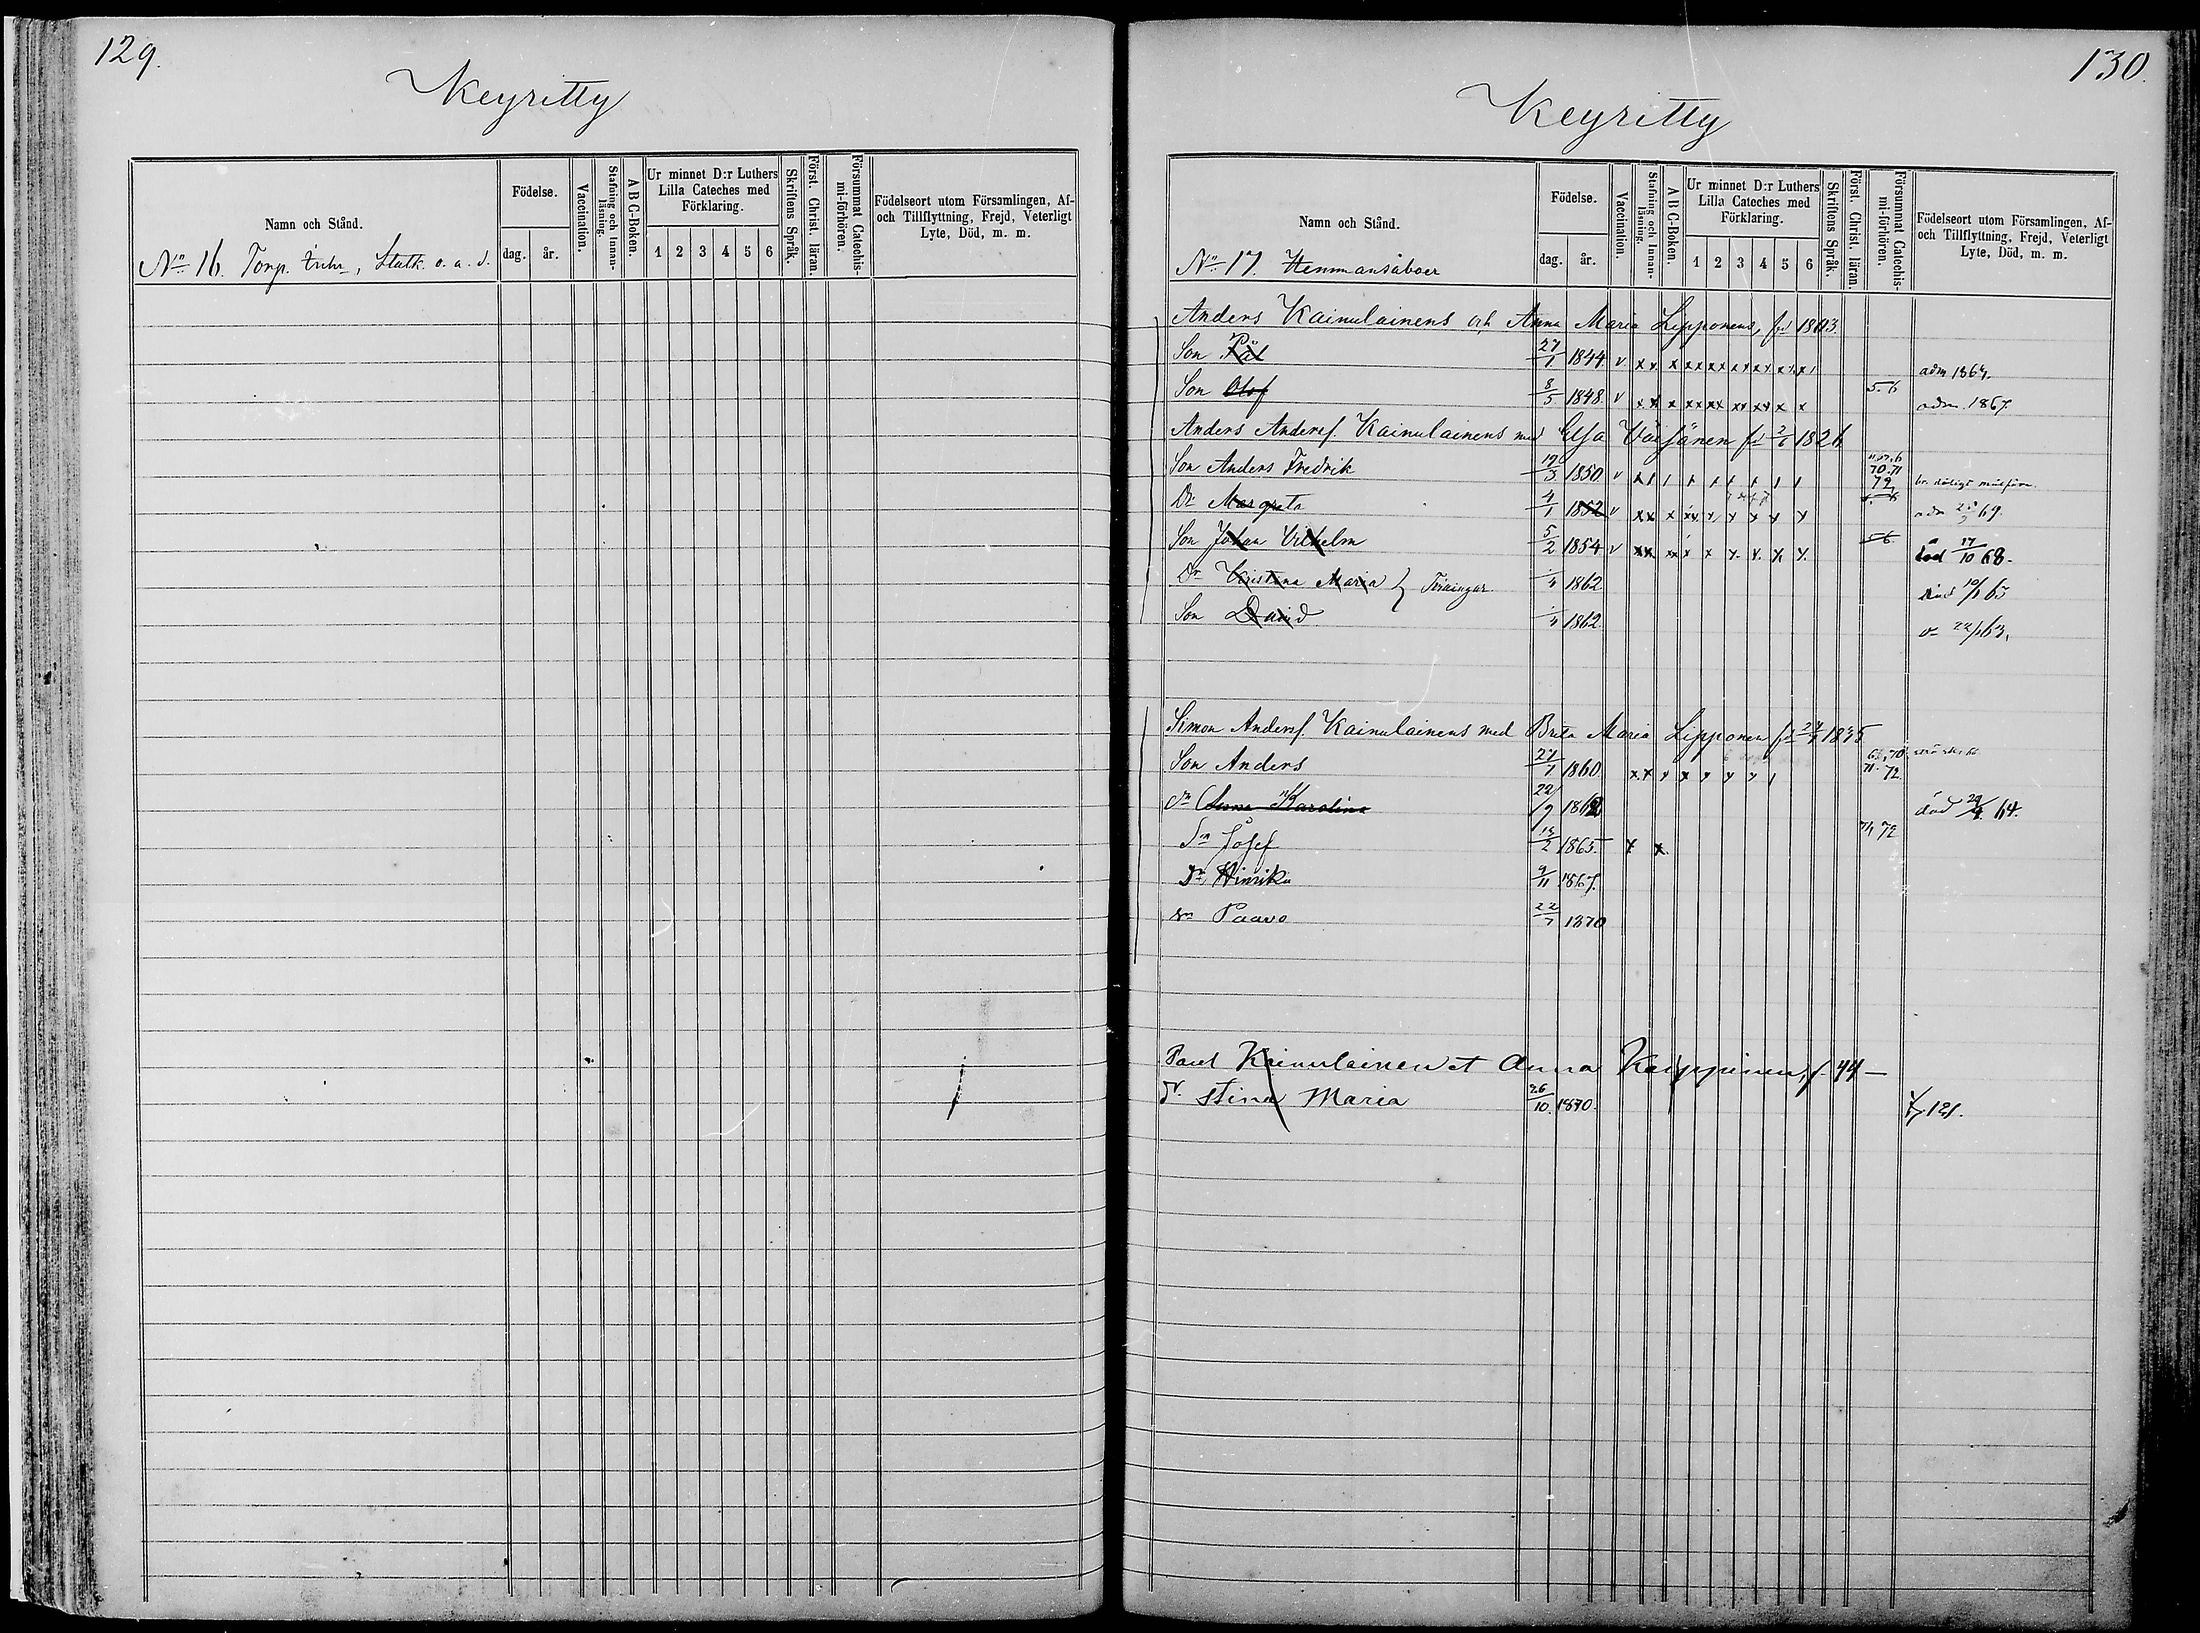 129.
Keyritty
Namn och Stånd.
Födelse.
dag. år.
Vaccination.
Stafning och Innanläsning.
A B C-Boken.
Ur minnet D:r Luthers Lilla Cateches med Förklaring.
1 2 3 4 5 6
Skriftens Språk.
Först. Christ. läran.
Försummat Catechismi-förhören.
Födelseort utom Församlingen, Af- och Tillflyttning, Frejd, Veterligt Lyte, Död, m. m.
No 16. Torp. Enkr, Statk. o. a. d.
130.
Keyritty
Namn och Stånd.
Födelse.
dag. år.
Vaccination.
Stafning och Innanläsning.
A B C-Boken.
Ur minnet D:r Luthers Lilla Cateches med Förklaring.
1 2 3 4 5 6
Skriftens Språk.
Först. Christ. läran.
Försummat Catechismi-förhören.
Födelseort utom Församlingen, Af- och Tillflyttning, Frejd, Veterligt Lyte, Död, m. m.
No 17. Hemmansåboer
Anders Kainulainens och Anna Maria Lipponens, fd 1803.
Son Pål 27/1 1844 v x x x x x x x x x x x x x adm 1864.
Son Olof 8/5 1848 v x x x x x x x x x x x x x 5-6 adm. 1867.
Anders Andersf. Kainulainens med Elsa Väisänen fd 2/6 1826
Son Anders Fredrik 19/3 1850 v 70.71 72
Dr Margreta 4/1 1852 v x x x x x x x x x adm 69.
Son Johan Vilhelm 5/2 1854 v x x x x x x x x x 5-6 död 17/10 68.
Dr Kristina Maria } Tvillingar 1862 död 65
Son David 1862 dn 22/1 63.
Simon Andersf. Kainulainens med Brita Maria Lipponen 1835
Son Anders 27/7 1860 x x x x x x x 70 71. 72.
dr Anna Karolina 22/9 1862 död 29/4 64.
Sn Josef 13/2 1865. x x 71, 72
Dr Hinrika 9/11 1867.
Sn Paavo 22/7 1870
Pavel Kainulainen et Anna Karppinen, f. 44 —
d. Stina Maria 26/10. 1870. 121.